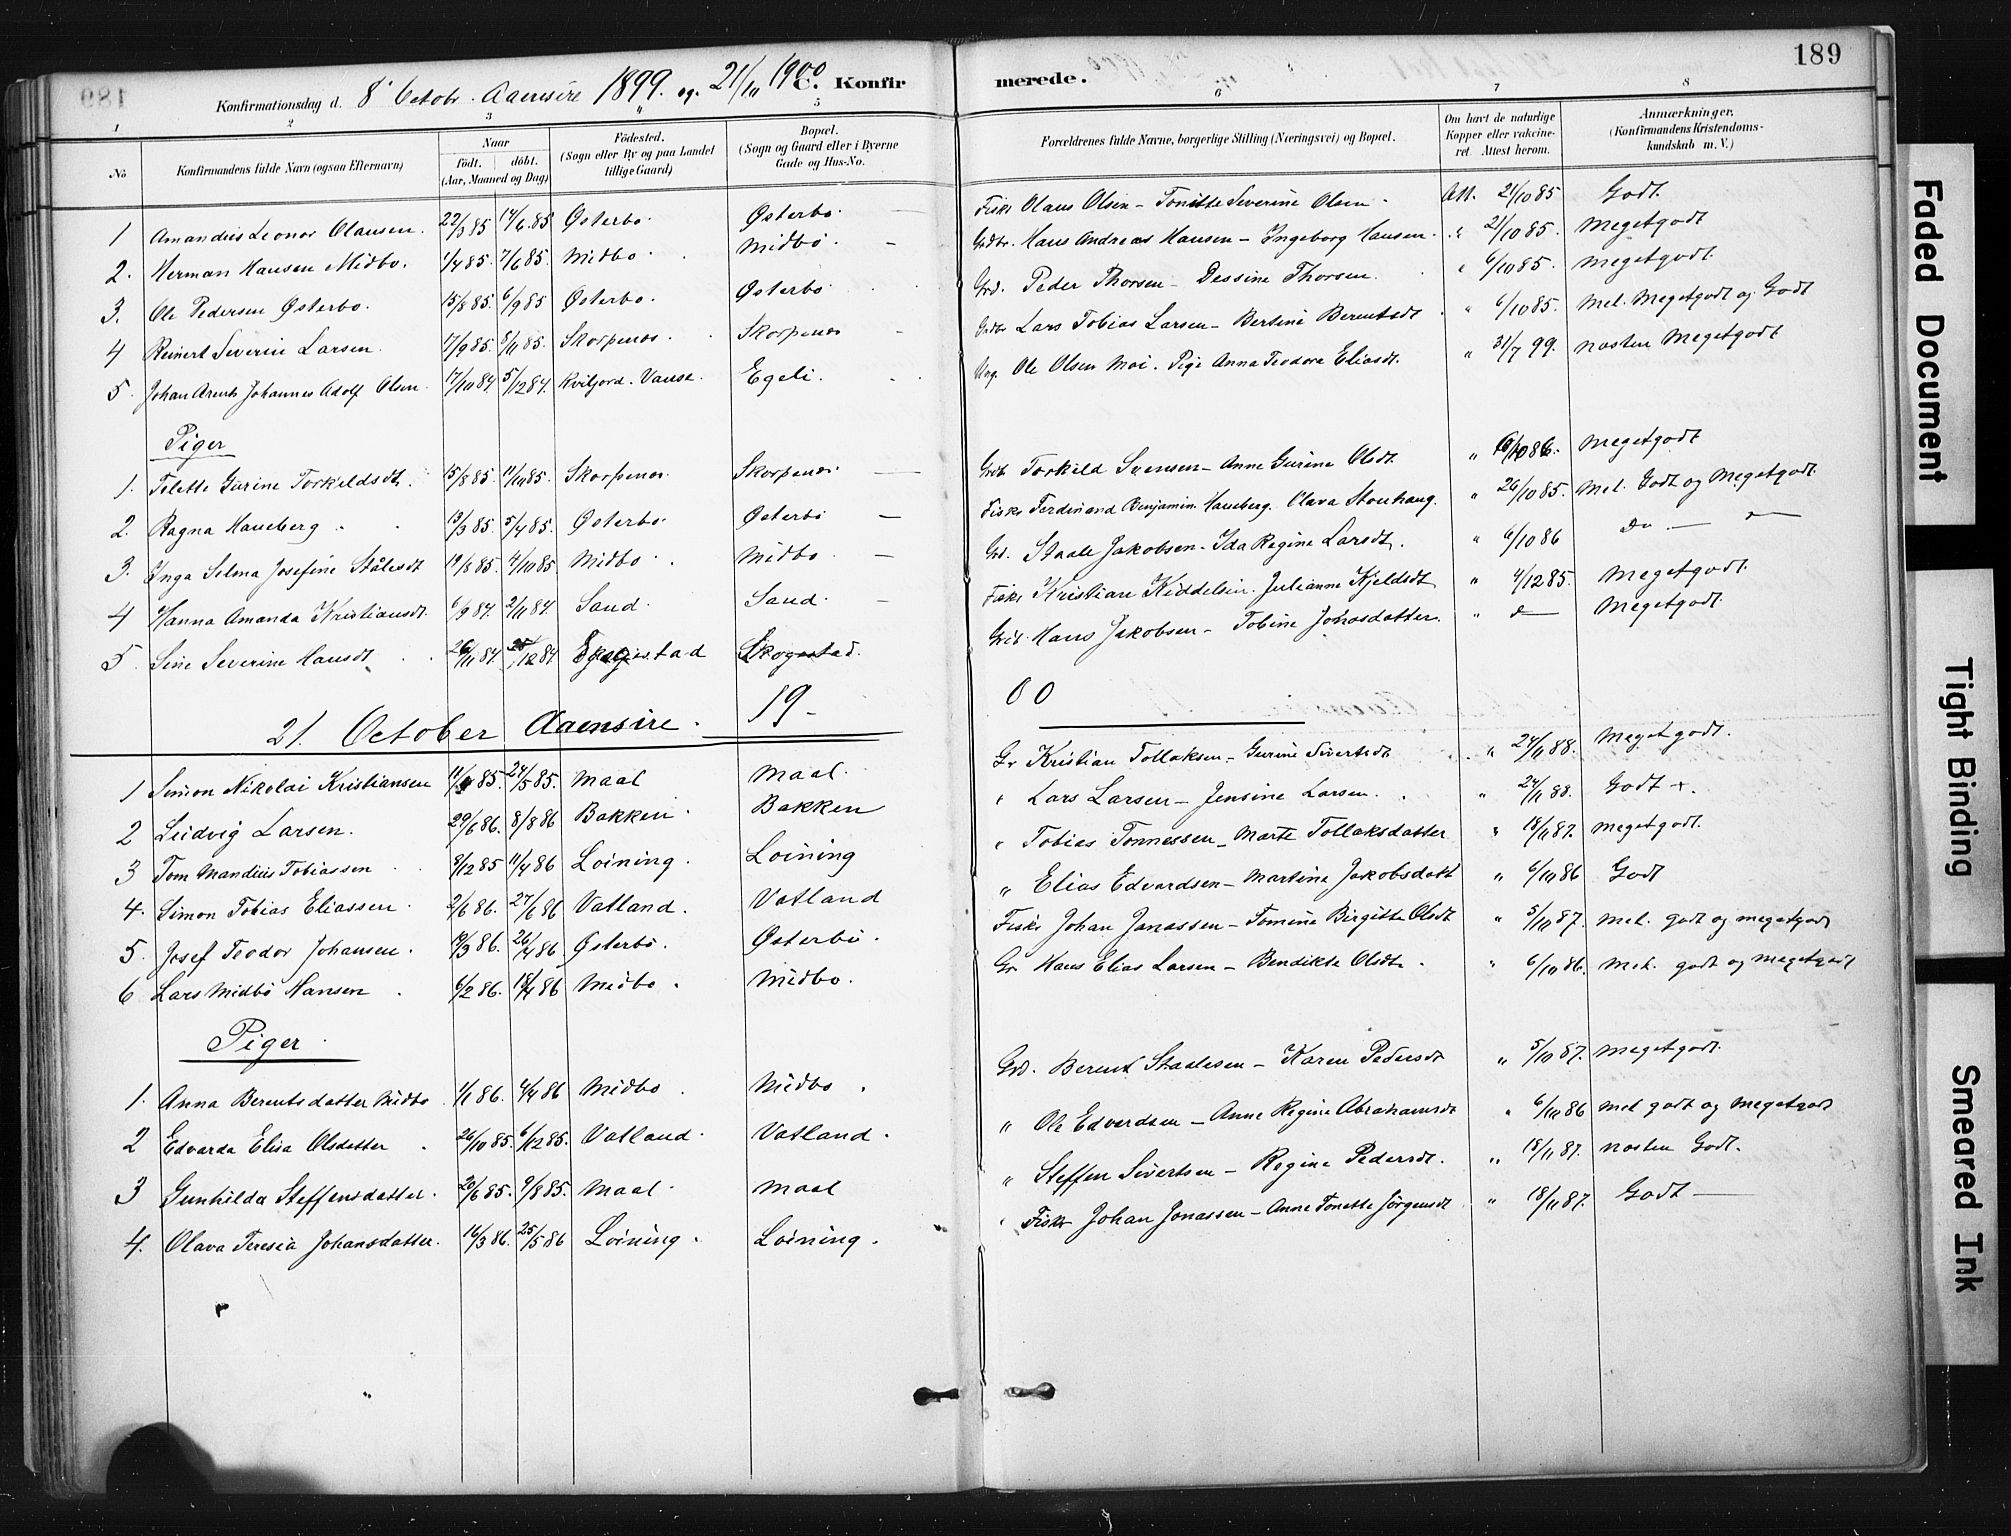 189
Konfirmationsdag d. 8 Octobr. Aaensire 1899. og. 21/11 1900 C. Konfir merede.
1 2 3 4 5 6 7 8
No
Konfirmandens fulde Navn (ogsaa Efternavn)
Naar
født. døbt.
(Aar, Maaned og Dag)
Fødested.
(Sogn eller By og paa Landet
tillige Gaard)
Bopæl.
(Sogn og Gaard eller i Byerne
Gade og Hus-No.
Forældrenes fulde Navne, borgerlige Stilling (Næringsvei) og Bopæl.
Om havt de naturlige
Kopper eller vakcine-
ret. Attest herom.
Anmærkninger.
(Konfirmandens Kristendoms-
kundskab m. V.)
1 Amandus Leonor Olausen. 22/3 85 14/6.85 Østerbø. Østerbø. Fisker Olaus Olsen - Tonette Severine Olsen. Att. 21/10 85 Godt.
2. Herman Hansen Midbø. 1/4 85. 7/6 85. Midbø. Midbø. Grdbr. Hans Andreas Hansen - Ingeborg Hansen. " 21/10 85. Megetgodt
3. Ole Pedersen Østerbø. 15/8 85. 6/9 85 Østerbø. Østerbø Grd. Peder Thorsen - Dessine Thorsen. " 6/10 85. Megetgodt
4 Reinert Severin Larsen. 7/9 85. 8/11 85. Skorpenes. Skorpenes Grdbr Lars Tobias Larsen - Bertine Berentsdt " 6/10 85. Mel. Megetgodt og Godt
5. Johan Arent Johannes Adolf Olsen. 17/10 84 5/12 84. Kviljord. Vanse. Egeli. Ung. Ole Olsen Moi. Pige Anna Teodora Eliasdt. " 31/7 99. næsten Megetgodt
Piger
1. Tolette Gurine Torkildsdt. 15/8 85. 11/10 85. Skorpenes. Skorpenes Grdb Torkild Svensen - Anne Gurine Olsdt " 6/10 86. Megetgodt
2. Ragna Haneberg. 13/3 85. 5/4 85. Østerbø. Østerbø Fisker Ferdinand Benjamin Haneberg. Olava Stenhaug. " 26/10 85. Mel. Godt og Megetgodt.
3. Inga Selma Josefine Stålesdt 19/8 85. 4/10 85. Midbø. Midbø. Grd. Staale Jakobsen - Ida Regine Larsdt. " 6/10 86 do. — do
4 Hanna Amanda Kristiansdt. 6/9 84. 2/11 84. Sand. Sand. Fisker Kristian Kiddelsen. Julianne Kjeldsdt " 4/12 85. Megetgodt.
5. Sine Severine Hansdt 26/11 84. 25/12 84 Skogestad Skogestad. Grdb. Hans Jakobsen - Tobine Jonasdatter. " do Megetgodt.
21. October Aaensire. 19- 00
1 Simon Nikolai Kristiansen 11/4 85. 24/5 85. Maal Maal. Gr Kristian Tollaksen - Gurine Sivertsdt " 24/11 88. Megetgodt.
2 Ludvig Larsen. 29/6 86. 8/8 86 Bakken. Bakken " Lars Larsen - Jensine Larsen. " 24/11 88. Godt +.
3 Tom Mandius Tobiassen 8/12 85 11/4 86 Loining. Loining " Tobias Tonnessen - Marte Tollaksdatter " 18/11 87. Megetgodt.
4. Simon Tobias Eliassen. 2/6 86. 27/6 86 Vatland. Vatland " Elias Edvardsen - Martine Jakobsdatt " 6/10 86 Godt
5. Josef Teodor Johansen. 19/3 86. 26/4 86 Østerbø. Østerbø. Fisker Johan Jonassen - Tomine Birgitte Olsdt " 5/10 87. Mel. godt og megetgodt
6 Lars Midbø Hansen 6/2 86. 18/4 86 Midbø. Midbø. Gr. Hans Elias Larsen - Bendikte Olsdt. " 6/10 86. Mel. godt og megetgodt
Piger.
1. Anna Berentsdatter Midbø 1/1 86. 4/4 86 Midbø Midbø. Grd. Berent Staalesen - Karen Pedersdt " 5/10 87. Megetgodt.
2 Edvarda Elisa Olsdatter 26/10 85. 6/12 85. Vatland. Vatland. " Ole Edvardsen - Anne Regine Abrahamsdt " 6/10 86 Mel godt og Megetgodt
3 Gunhilda Steffensdatter. 20/6 85. 9/8 85. Maal. Maal " Steffen Sivertsen - Regine Pedersdt. " 18/11 87. næsten Godt.
4. Olava Teresia Johansdatter. 16/3 86. 25/5 86 Loining. Loining. " Fisker Johan Jonassen - Anne Tonette Jörgensdt " 18/11 87. Godt —
Faded Document
Tight Binding
Smeared Ink